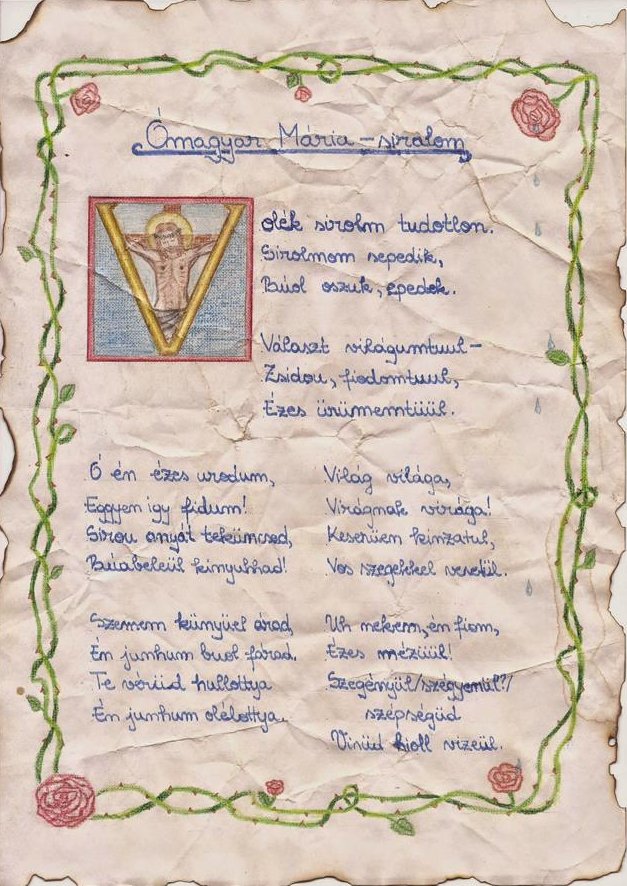 Ómagyar Mária-siralom
Volék sirolm tudotlon.
Sirolmom sepedik,
Búol oszuk, epedek.
Választ világumtuul-
Zsidou, fiodomtuul,
Ézes ürümemtüül.
Ó én ézes urodum,
Eggyen igy fidum!
Sirou anyát teküncsed,
Búabeleül kinyuhhad!
Szemem künyüel árad,
Én junhum buol fárad.
Te vérüd hullottya
Én junhum olélottya.
Világ világa,
Virágnak virága!
Keserüen kinzatul,
Vos szegekkel veretül.
Uh nekem, én fiom,
Ézes mézüül!
Szegényül/szégyenül?/
szépségüd
Virüd hioll vizeül.